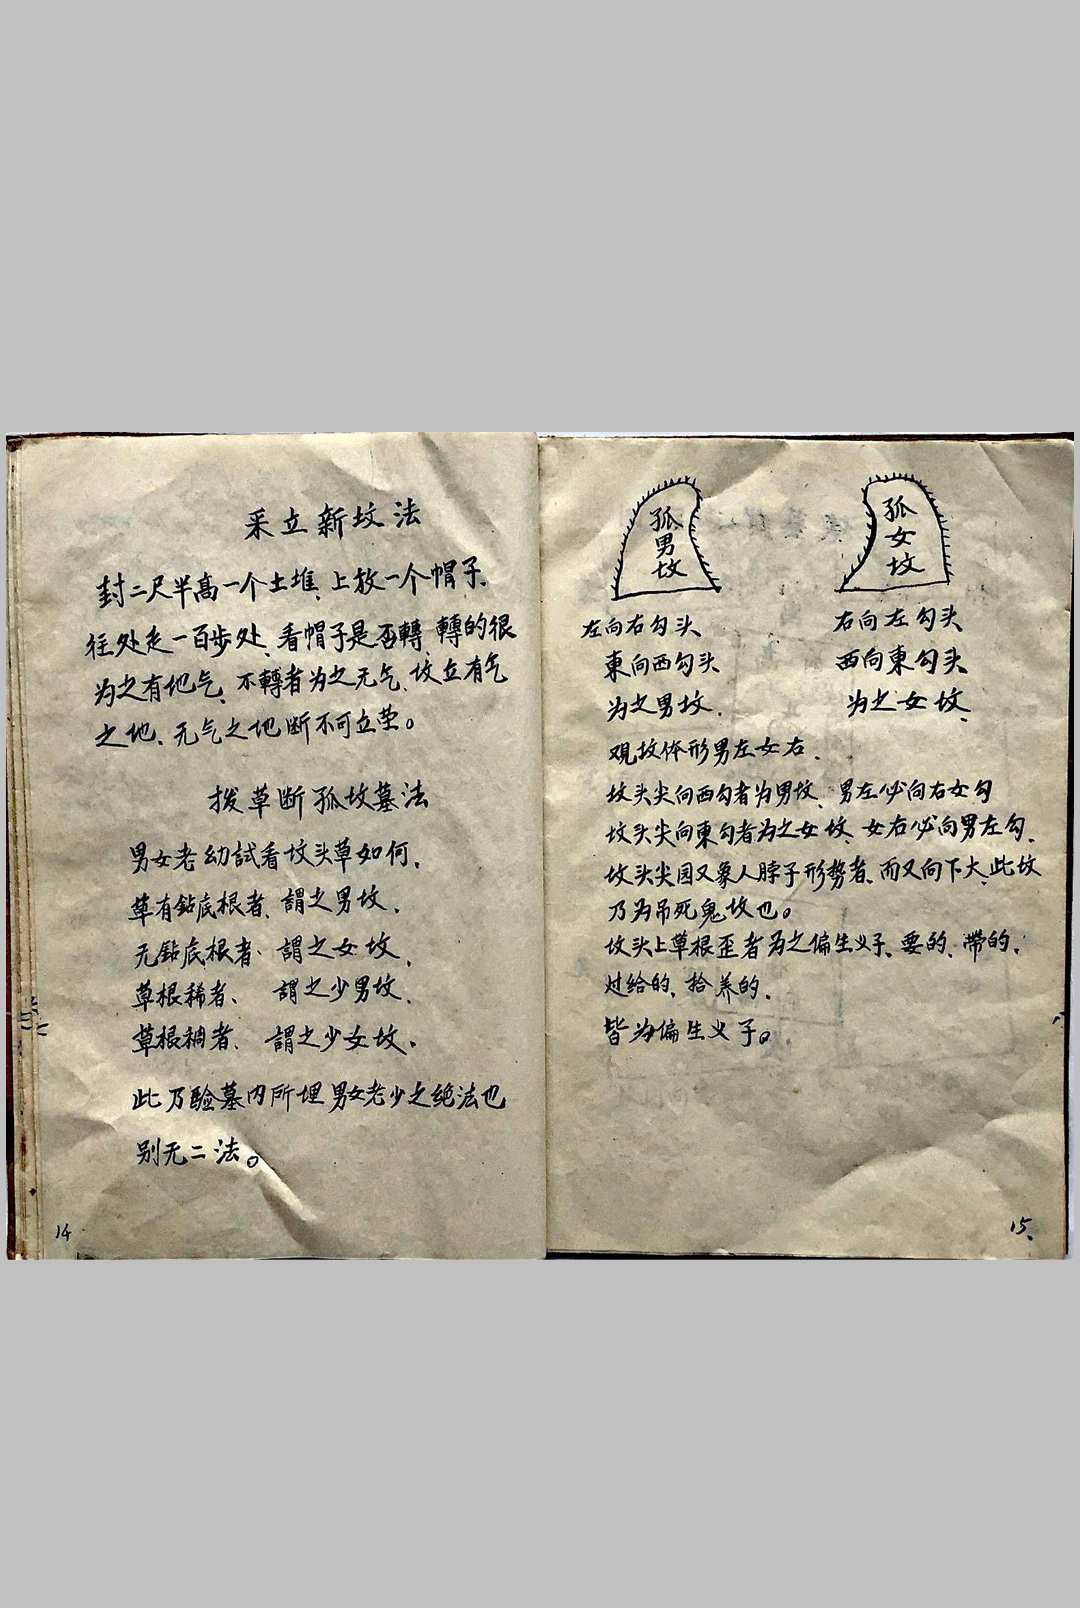 采立新坟法
封二尺半高一个土堆、上放一个帽子、
往处走一百步处、看帽子是否轉、轉的很
为之有地气、不轉者为之无气、坟立有气
之地、无气之地断不可立茔。
拨草断孤坟墓法
男女老幼試看坟头草如何、
草有鉆底根者、謂之男坟、
无鉆底根者、謂之女坟、
草根稀者、謂之少男坟、
草根稠者、謂之少女坟、
此乃驗墓内所埋男女老少之绝法也
别无二法。
14
孤男坟
左向右勾头
東向西勾头
为之男坟、
孤女坟
右向左勾头
西向東勾头
为之女坟、
观坟体形男左女右、
坟头尖向西勾者为男坟、男左必向右女勾
坟头尖向東勾者为之女坟、女右必向男左勾、
坟头尖园又象人脖子形势者、而又向下大、此坟
乃为吊死鬼坟也。
坟头上草根歪者为之偏生义子、要的、带的、
过给的、拾养的、
皆为偏生义子。
15、